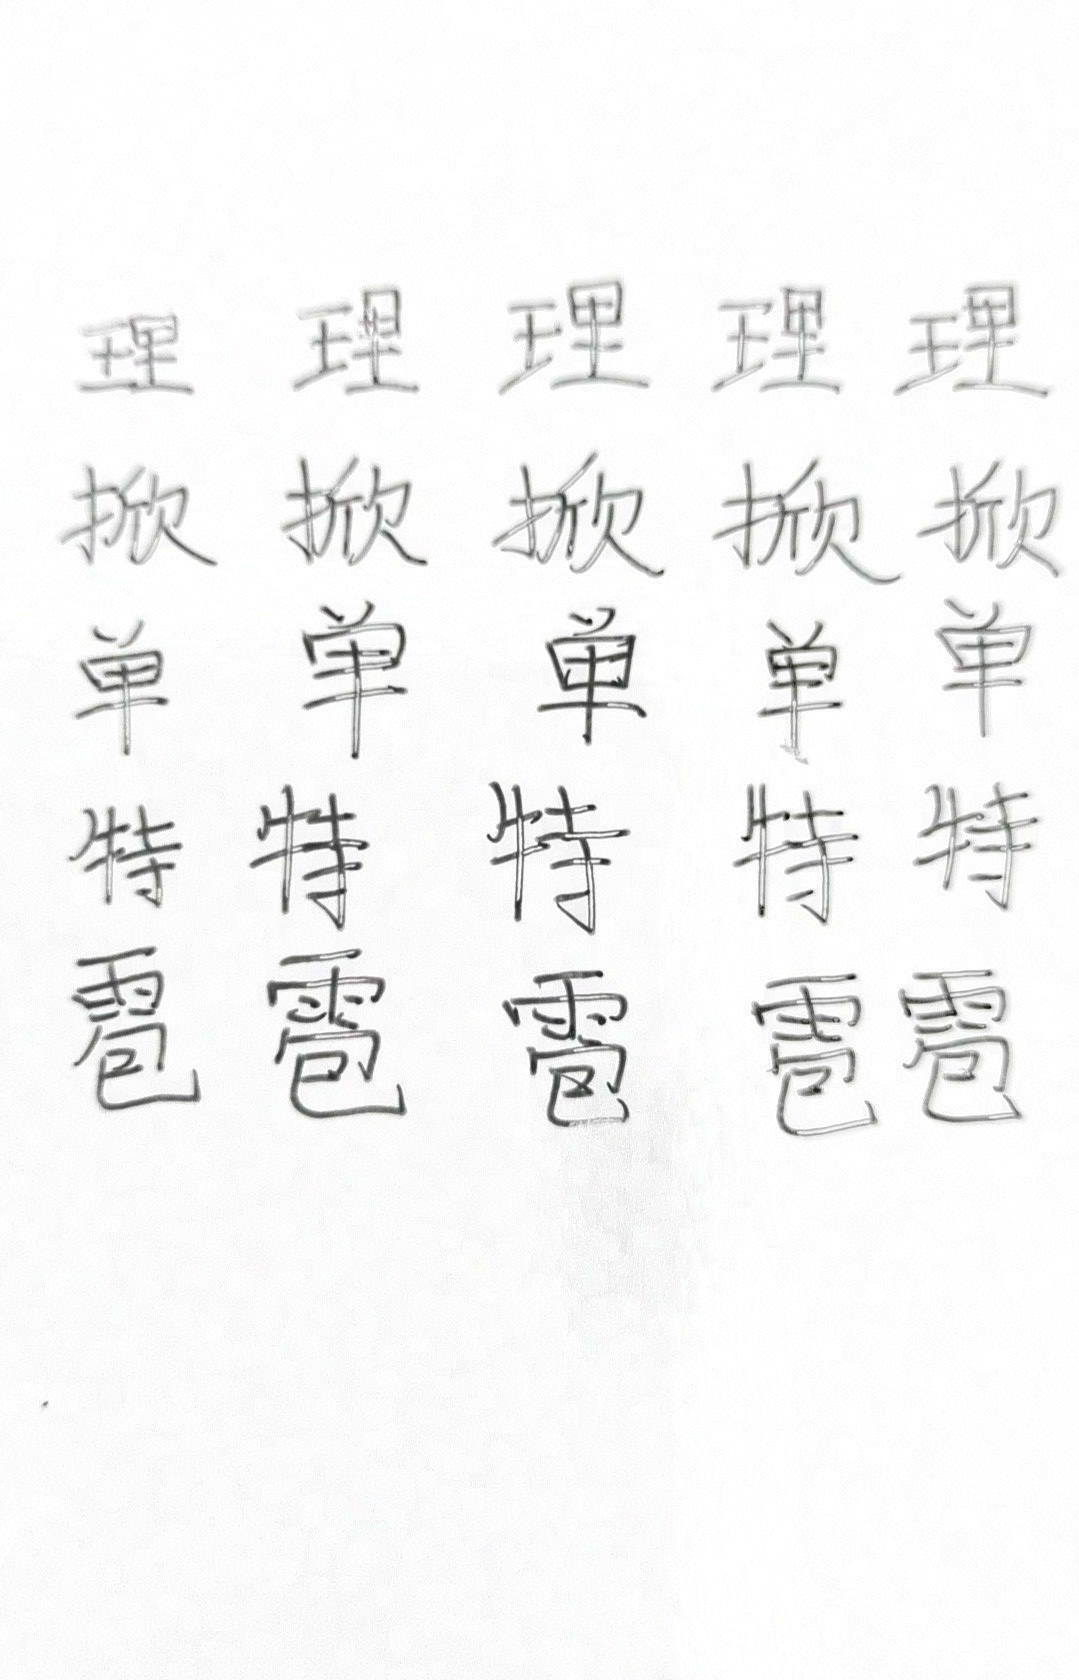 理 理 理 理 理
掀 掀 掀 掀 掀
单 单 单 单 单
特 特 特 特 特
雹 雹 雹 雹 雹